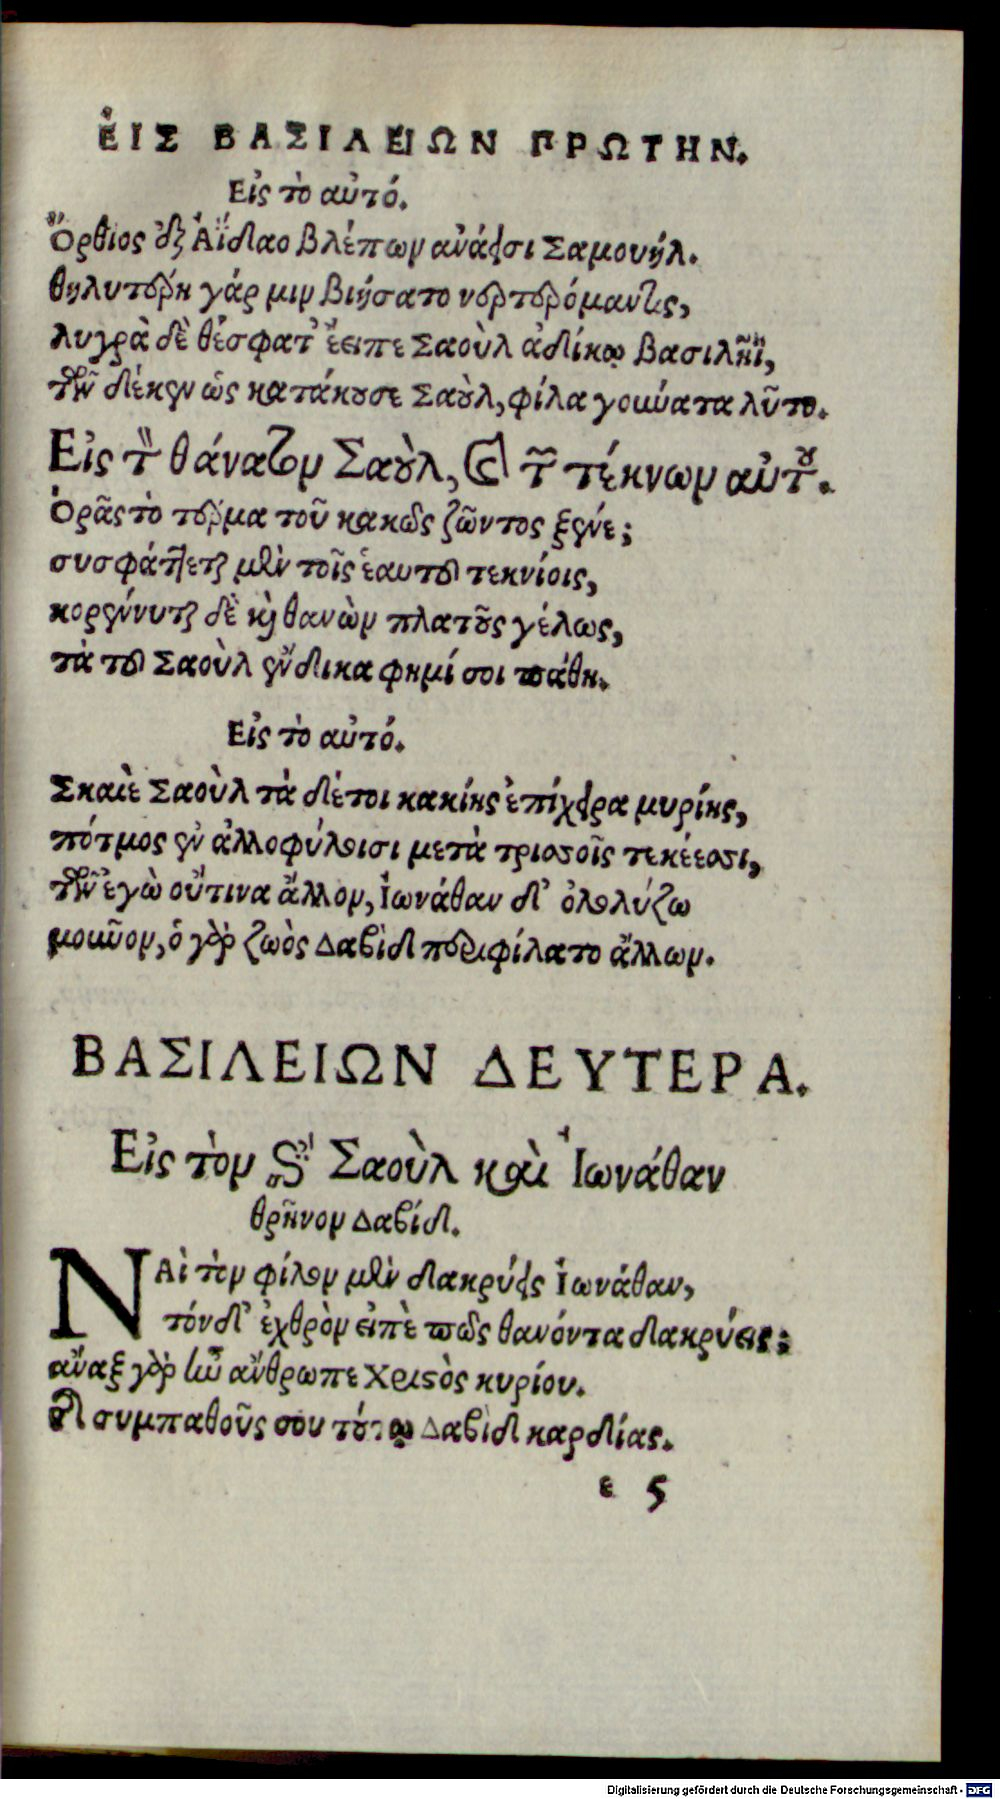 ἘΙΣ ΒΑΣΙΛΕΙΩΝ ΠΡΩΤΗΝ.
Εἰς τὸ αὐτό.
Ὄρθιος ἐξ Ἀΐδαο βλέπων ἀνάξσι Σαμουήλ.
θηλυτέρη γάρ μιν βιήσατο νερτερόμαντις,
λυγρὰ δὲ θέσφατ' ἔειπε Σαοὺλ ἀδίκῳ βασιλῆϊ,
τῶν δ' ἕκεν ὡς κατάκουσε Σαοὺλ, φίλα γούνατα λῦτο.
Εἰς τὸν θάνατον Σαοὺλ, καὶ τῶν τέκνων αὐτοῦ.
Ὁρᾶς τὸ τέρμα τοῦ κακῶς ζῶντος ξένε;
συσφάττεται μὲν τοῖς ἑαυτοῦ τεκνίοις,
κορεννύται δὲ καὶ θανὼν πλατοῦς γέλως,
τὰ τοῦ Σαοὺλ ἔνδικα φημί σοι πάθη.
Εἰς τὸ αὐτό.
Σκαιὲ Σαοὺλ τὰ δέ τοι κακίης ἐπίχειρα μυρίης,
πότμος ἐν ἀλλοφύλοισι μετὰ τρισσοῖς τεκέεσσι,
τῶν ἐγὼ οὔτινα ἄλλον, Ἰωνάθαν δ' ὀλολύζω
μοῦνον, ὁ γὰρ ζωὸς Δαβὶδ περιφίλατο ἄλλων.
ΒΑΣΙΛΕΙΩΝ ΔΕΥΤΕΡΑ.
Εἰς τὸν ἐπὶ Σαοὺλ καὶ Ἰωνάθαν
θρῆνον Δαβίδ.
ΝΑὶ τὸν φίλον μὲν δακρύεις Ἰωνάθαν,
τόν δ' ἐχθρὸν εἰπὲ πῶς θανόντα δακρύεις;
ἄναξ γὰρ ἦν ἄνθρωπε χριστὸς κυρίου.
συμπαθοῦς σου τούτῳ Δαβὶδ καρδίας.
ε 5
Digitalisierung gefördert durch die Deutsche Forschungsgemeinschaft - DFG